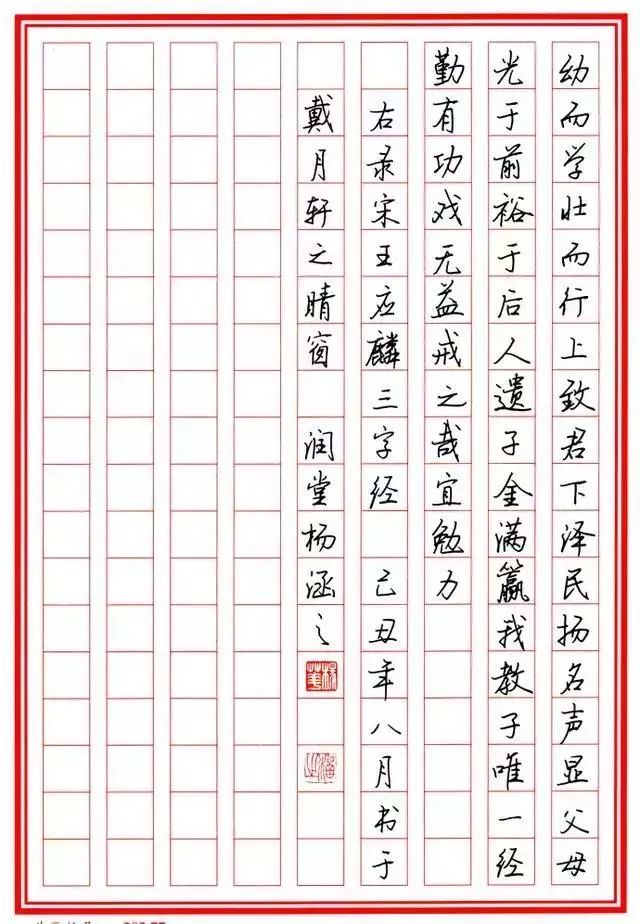 幼而学壮而行上致君下泽民扬名声显父母
光于前裕于后人遗子金满籯我教子唯一经
勤有功戏无益戒之哉宜勉力
右录宋王应麟三字经 己丑年八月书于
戴月轩之晴窗 润堂杨涵之